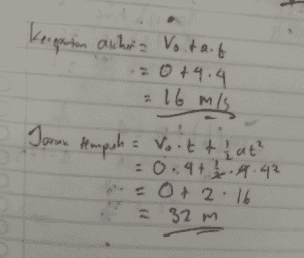 Kecepatan akhir = Vo + a . t
= 0 + 4 . 4
= 16 m/s
Jarak tempuh = Vo . t + ½ at²
= 0 . 4 + ½ . 4 . 4²
= 0 + 2 . 16
= 32 m